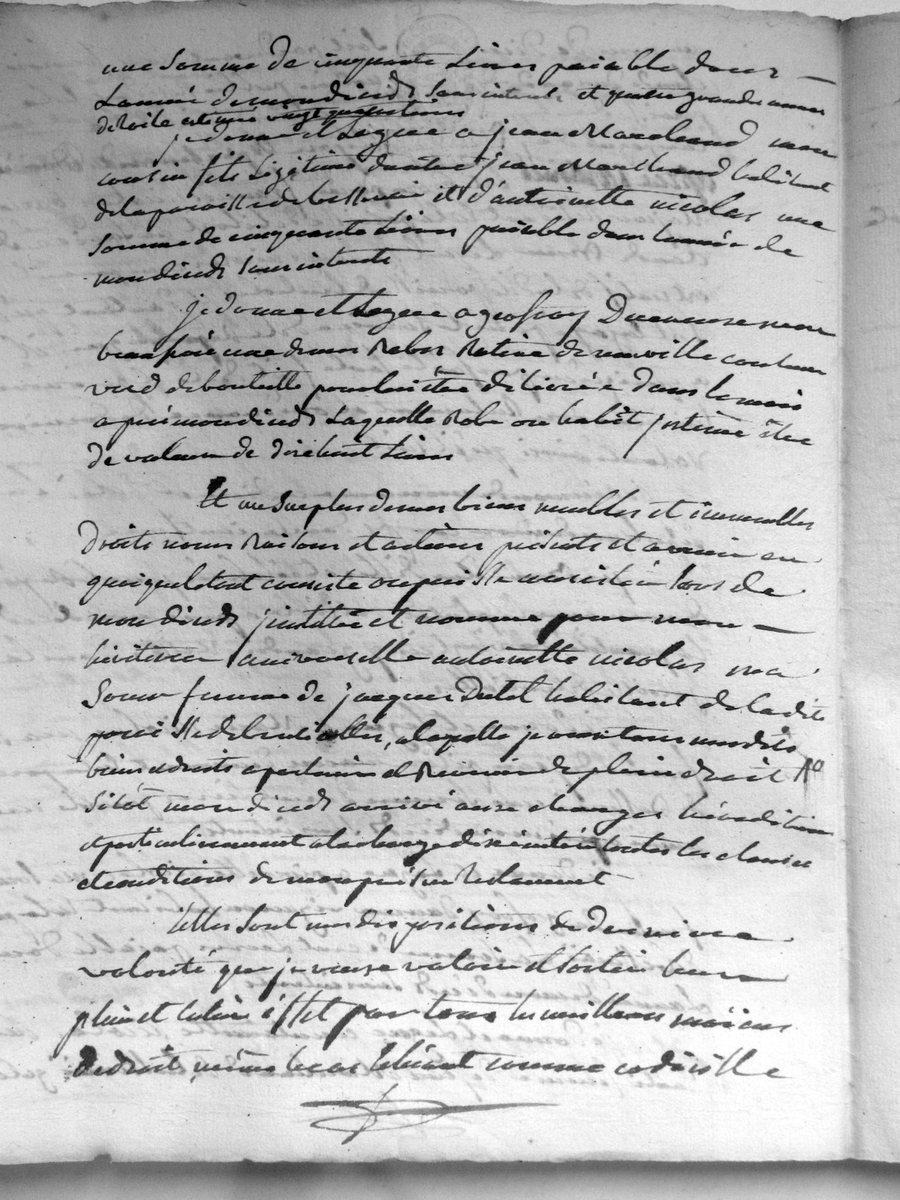 une somme de cinquante Livres paiable dans
L'année de mon dieceds sans interets et quatre grandes aunes
de toile
je donne et Legue a jean Marchand mon
cousin fils Legitime dautre jean Marchand habitant
de la paroisse de et d'antoinette nicolas une
somme de cinquante Livres paiable dans lannée de
mon dieceds sans interets
je donne et Legue a geofroy mon
beaufrere une de mes Robes Ratine de couleur
verd de bouteille pour lui être delivrée dans le mois
apres mon dieceds Laquelle Robe ou habit j'estime être
de valeur de dixhuit Livres
Et au Surplus de mes biens meubles et immeubles
droits noms Raisons et actions presents et avenir en
quoique le tout consiste ou puisse consister Lors de
mon dieceds j'institue et nomme pour mon
heritiere universelle antoinette nicolas ma
Soeur femme de jacques Dutel habitant de la dite
paroisse de a laquelle je veux tous mes dits
biens et droits apartenir et Revenir de plein droit
Sitôt mon dieceds arrivé aux charges hereditaires
et particulierement a la charge d'executer toutes les clauses
et conditions de mon present testament
telles sont mes dispositions de derniere
volonté que je veux valoir et sortir leur
plein et entier effet par tous les meilleurs moiens
de droit même le cas echeant comme codicille